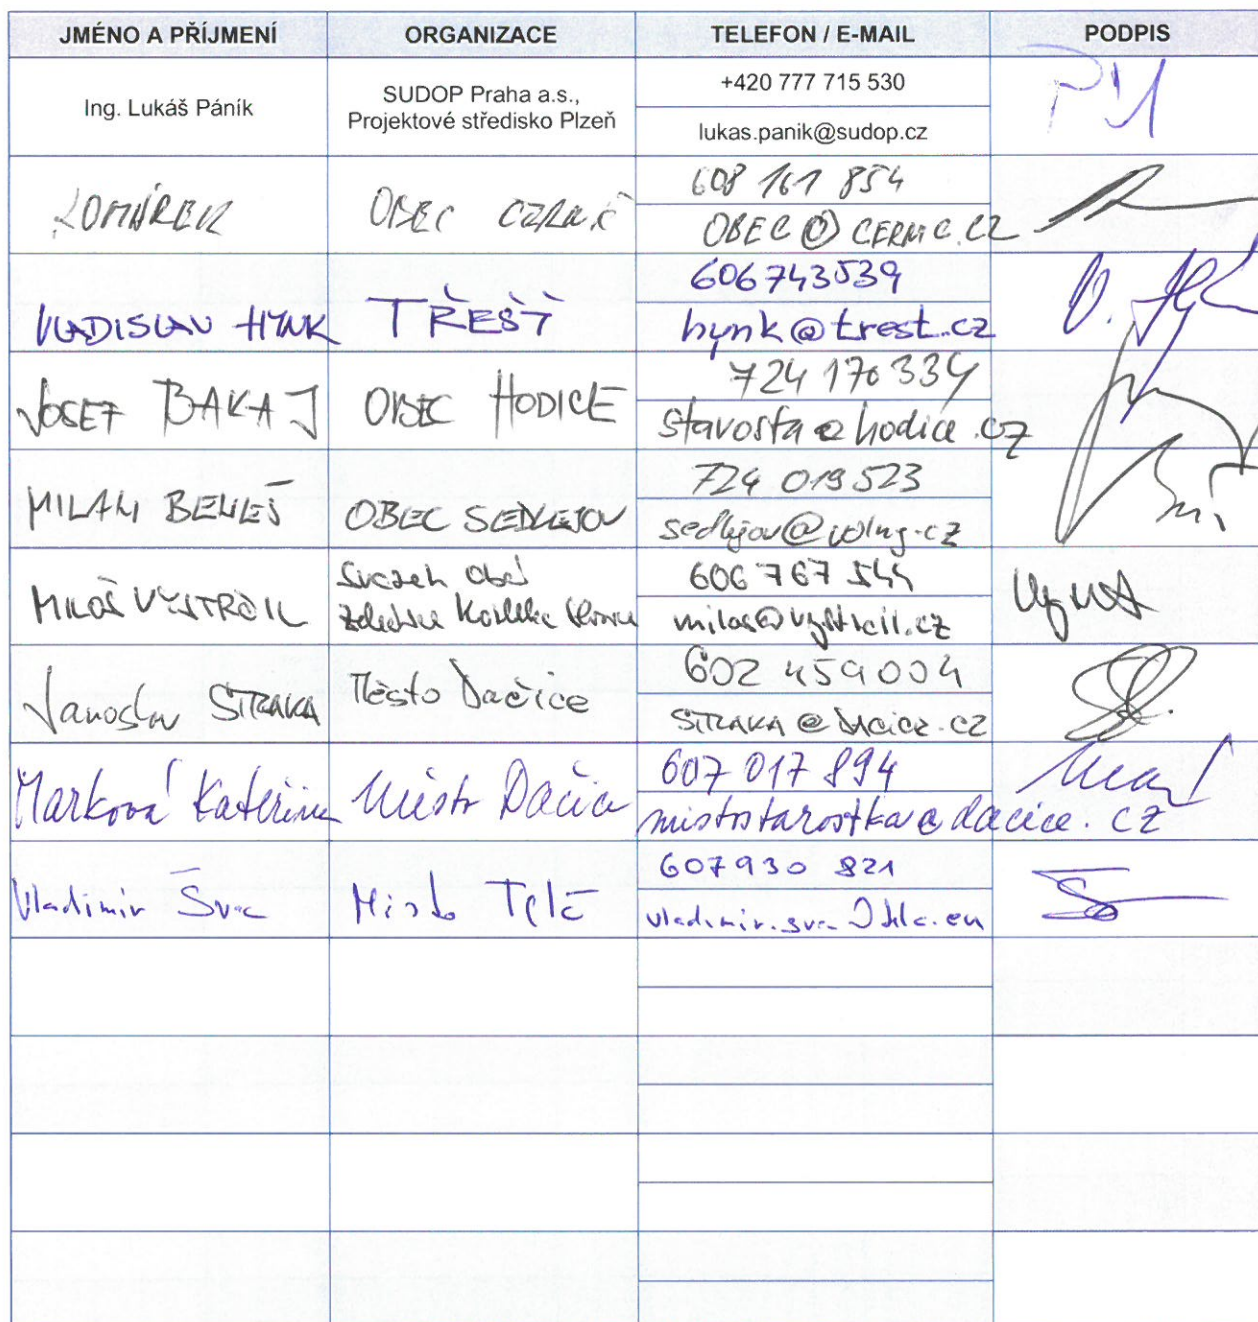 JMÉNO A PŘÍJMENÍ ORGANIZACE TELEFON / E-MAIL PODPIS
Ing. Lukáš Páník SUDOP Praha a.s., +420 777 715 530
Projektové středisko Plzeň lukas.panik@sudop.cz
OBEC 608 161 854
OBEC@CERNIC.CZ
VLADISLAV HYNK TŘEŠŤ 606743539
hynk@trest.cz
JOSEF BAKAJ OBEC HODICE 724 170 334
starosta@hodice.cz
MILAN BENEŠ OBEC SEDLEJOV 724 019523
sedlejov@volny.cz
MILOŠ VYSTRČIL Svazek obcí 606 767 544
milos@vystrcil.cz
Jaroslav STRAKA Město Dačice 602 459004
STRAKA@DACICE.CZ
Marková Kateřina Město Dačice 607 017 894
mistostarostka@dacice.cz
Vladimír Město Telč 607930 821